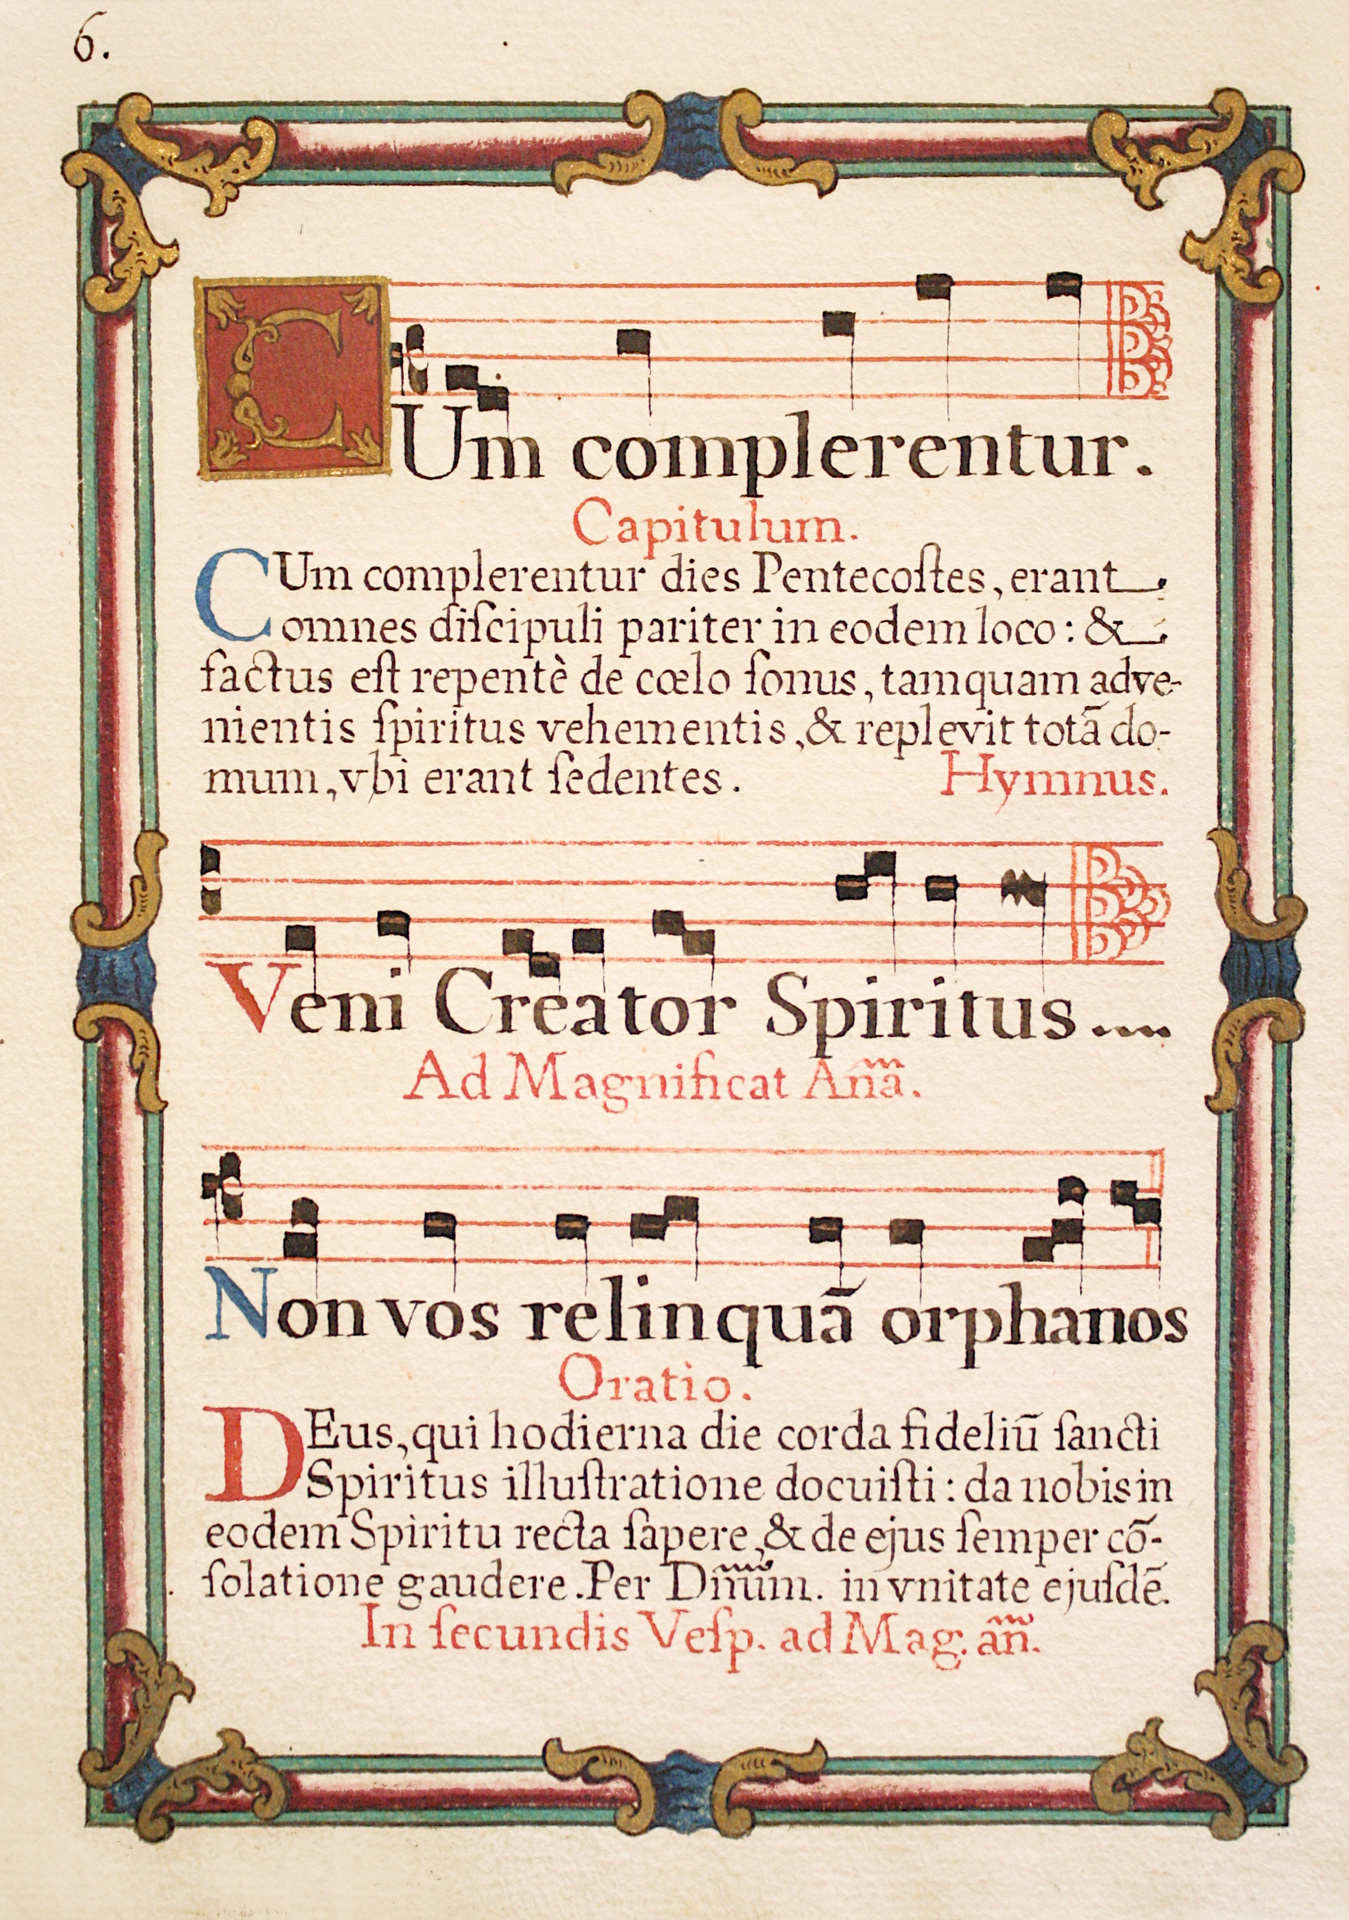 6.
CUm complerentur.
Capitulum.
CUm complerentur dies Pentecoſtes, erant
omnes diſcipuli pariter in eodem loco : &
factus eſt repentè de cœlo ſonus, tamquam adve-
nientis ſpiritus vehementis, & replevit totā do-
mum, vbi erant ſedentes. Hymnus.
Veni Creator Spiritus....
Ad Magnificat Añā.
Non vos relinquā orphanos
Oratio.
DEus, qui hodierna die corda fideliū ſancti
Spiritus illuſtratione docuiſti : da nobis in
eodem Spiritu recta ſapere, & de ejus ſemper cō-
ſolatione gaudere. Per Dñum. in vnitate ejuſdē.
In ſecundis Veſp. ad Mag. añ.